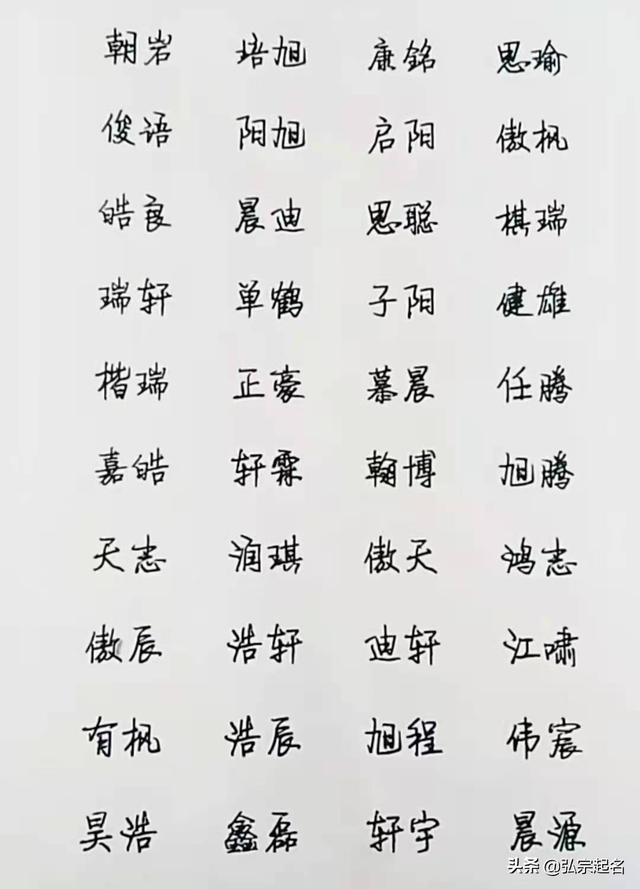 朝岩 培旭 康铭 思瑜
俊语 阳旭 启阳 傲枫
皓良 晨迪 思聪 棋瑞
瑞轩 单鹤 子阳 健雄
楷瑞 正豪 慕晨 任腾
嘉皓 轩霖 翰博 旭腾
天志 润琪 傲天 鸿志
傲辰 浩轩 迪轩 江啸
有枫 浩辰 旭程 伟宸
昊浩 鑫磊 轩宇 晨源
头条 @弘宗起名